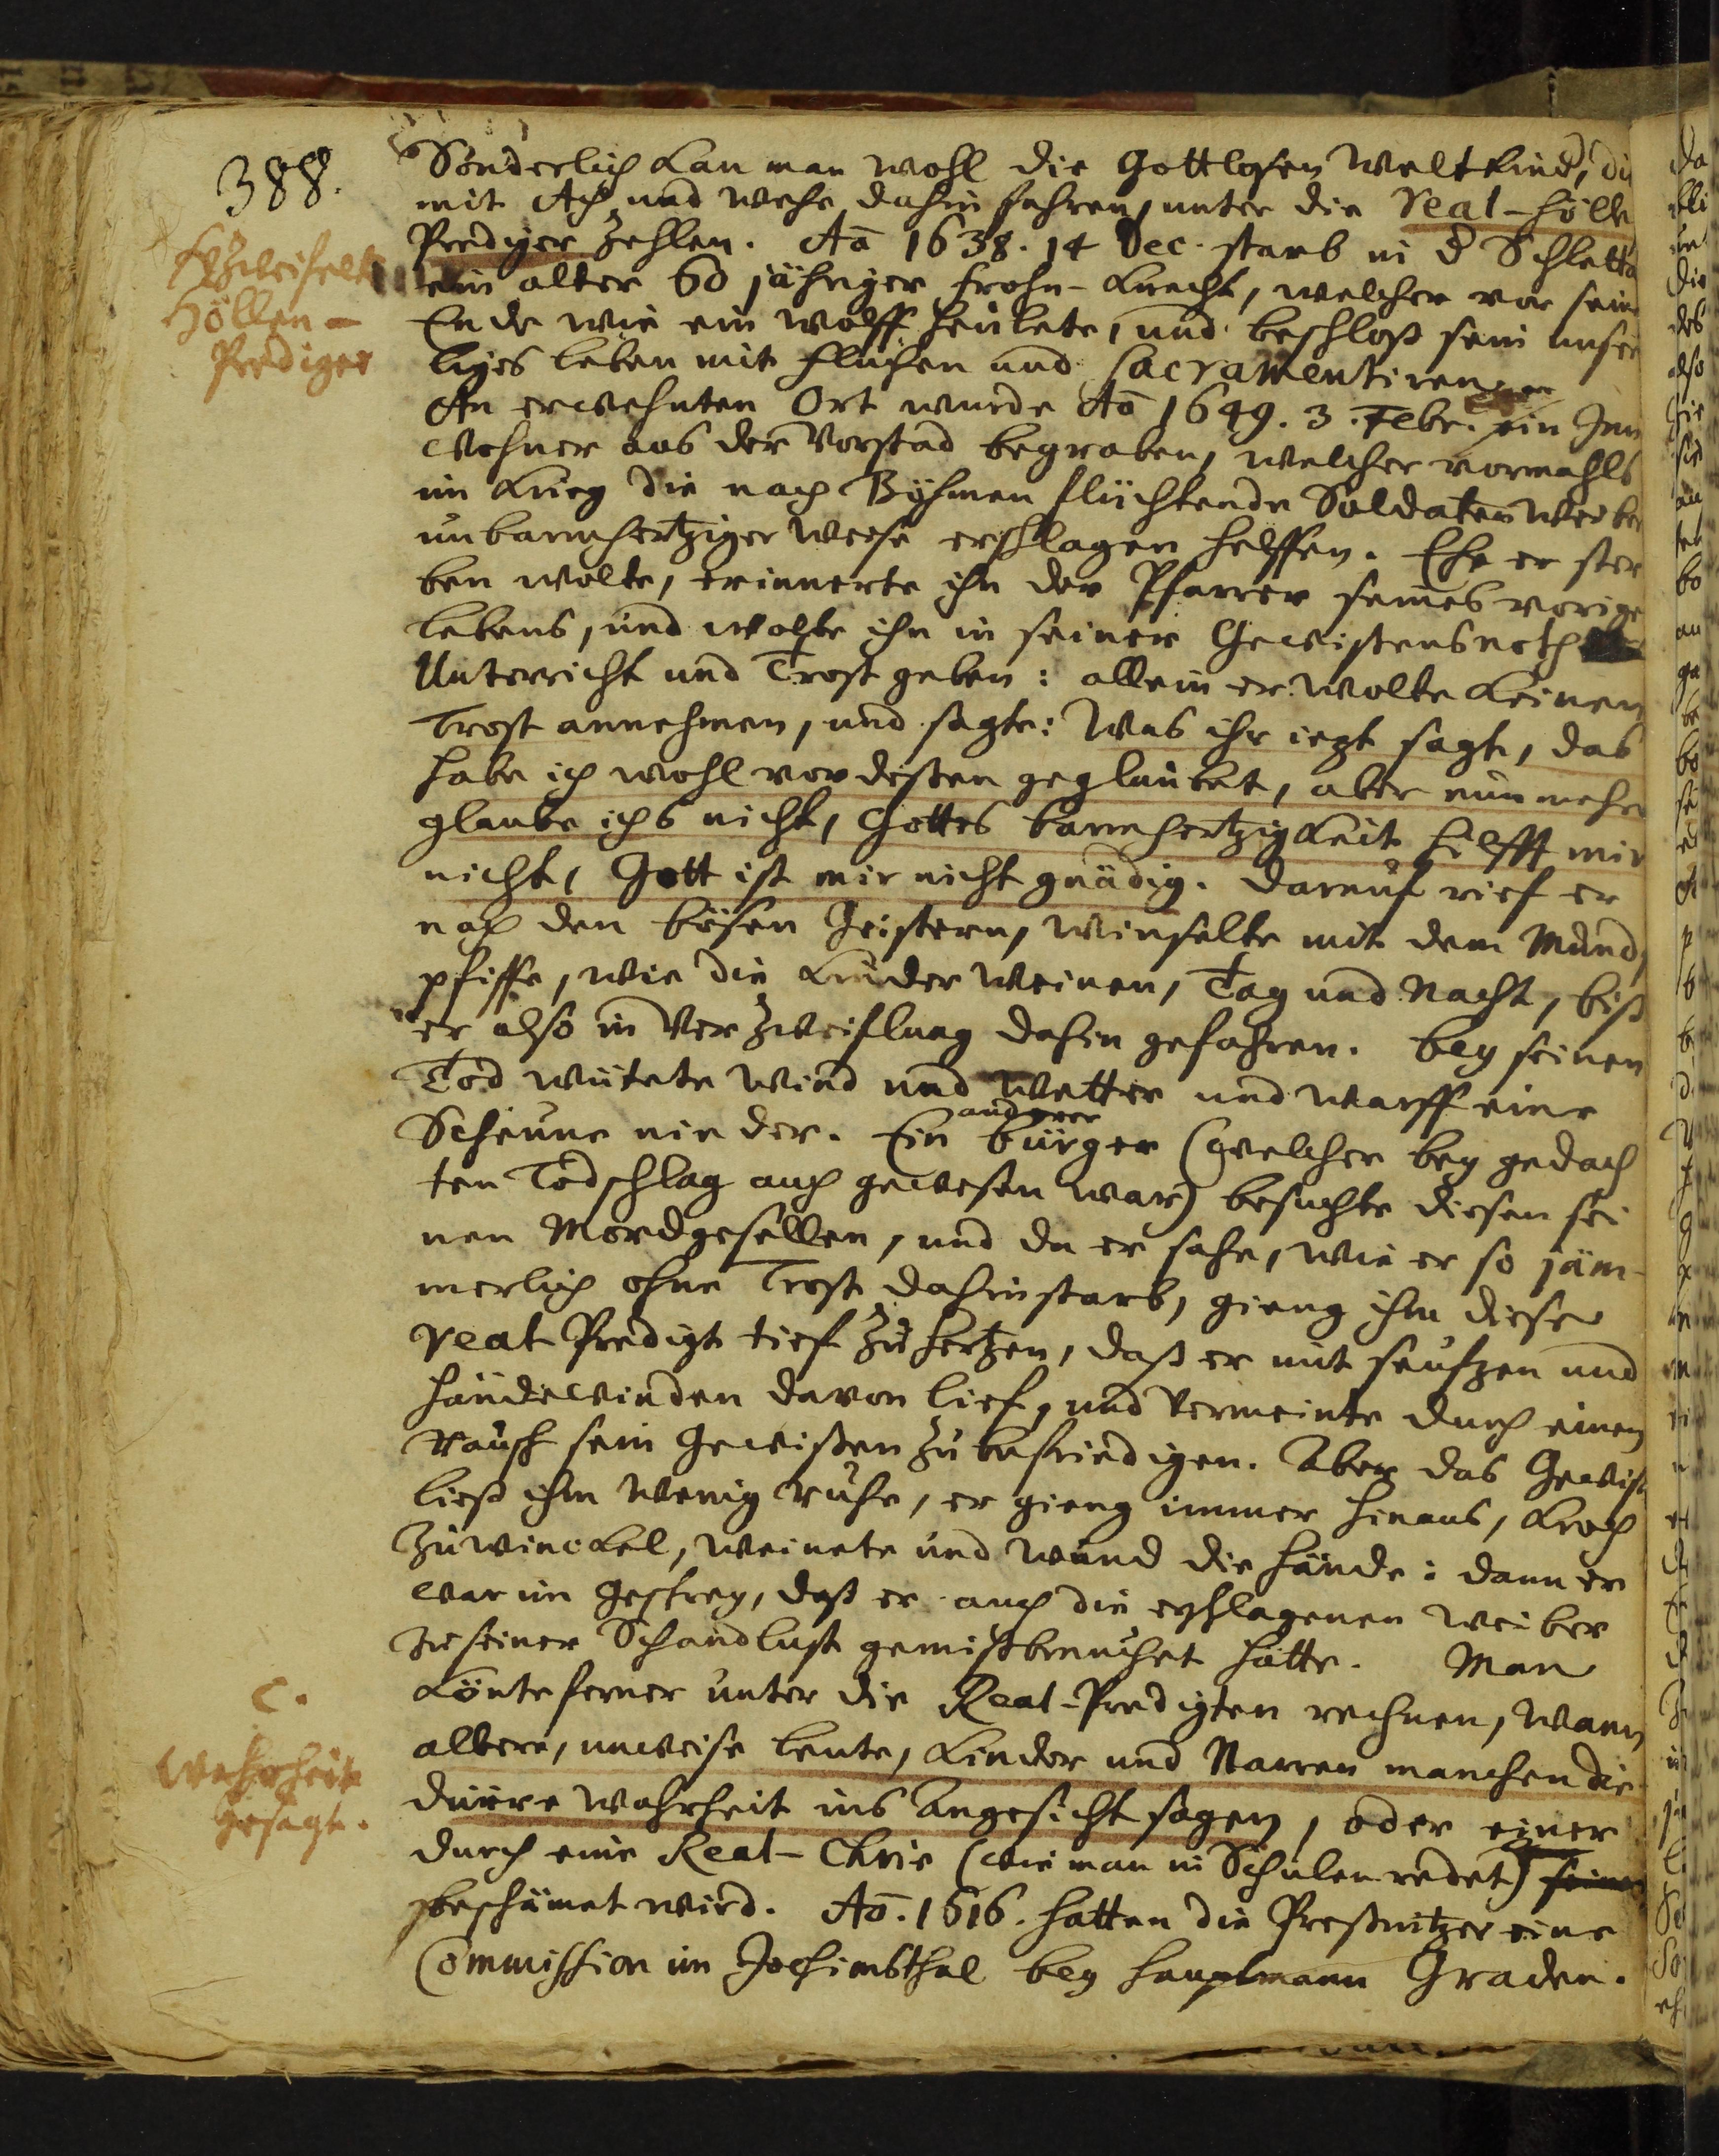 388.
Sonderlich kan man wohl die Gottlosen Weltkind, die
mit Ach und wehe dahin fahren, unter die Real-Hölle
Prediger zehlen. Aō 1638. 14 Dec. starb in d Schletta
Verzweifelte
Höllen-
Prediger
ein alter 60 jähriger Frohn-Knecht, welcher vor sein
Ende wie ein wolff heulete, und beschloß sein unsee
liges leben mit fluchen und sacramentiren
An erwehnten Ort wurde Aō 1649. 3. Febr. ein Inn
wohner aus der Vorstad begraben, welcher vormahls
im Krieg die nach Böhmen flüchtende Soldaten weiber
unbarmhertziger weise erschlagen helffen. Ehe er ster
ben wolte, erinnerte ihn der Pfarrer seines vorige
lebens, und wolte ihn in seiner Gewissensnoth
Unterricht und Trost geben: allein er wolte keinen
Trost annehmen, und sagte: Was ihr iezt sagt, das
habe ich wohl vordessen geglaubet, aber nunmehr
glaube ichs nicht, Gottes barmhertzigkeit hilfft mir
nicht, Gott ist mir nicht gnädig. Darauf rief er
nach den bösen Geistern, winselte mit dem Mund,
pfiffe, wie die Kinder weinen, Tag und Nacht, biß
er also in Verzweiflung dahin gefahren. Bey seinen
Tod wütete Wind und Wetter und warff eine
Scheune nieder. Ein anderer bürger (welcher bey gedach
ten Todschlag auch gewesen war) besuchte diesen sei
nen Mordgesellen, und da er sahe, wie er so jäm-
merlich ohne Trost dahinstarb, gieng ihm diese
real Predigt tief zu hertzen, daß er mit seufzen und
händewinden davon lief, und vermeinte durch einen
Rausch sein Gewissen zu befriedigen. Aber das Gewiss
ließ ihm wenig ruhe, er gieng immer hinaus, kroch
zu winckel, weinete und wund die hände: dann er
war im geschrey, daß er auch die erschlagenen weiber
zu seiner Schandlust gemißbrauchet hatte. Man
C.
Wahrheit
gesagt.
könte ferner unter die Real-Predigten rechnen, wann
albere, unweise leute, Kinder und Narren manchen die
dürre Wahrheit ins Angesicht sagen, oder einer
durch eine Real-Chrie (wie man in Schulen redet)
beschämet wird. Aō. 1616. hatten die Preßnitzer eine
Commission im Jochimsthal bey Hauptmann Graden.